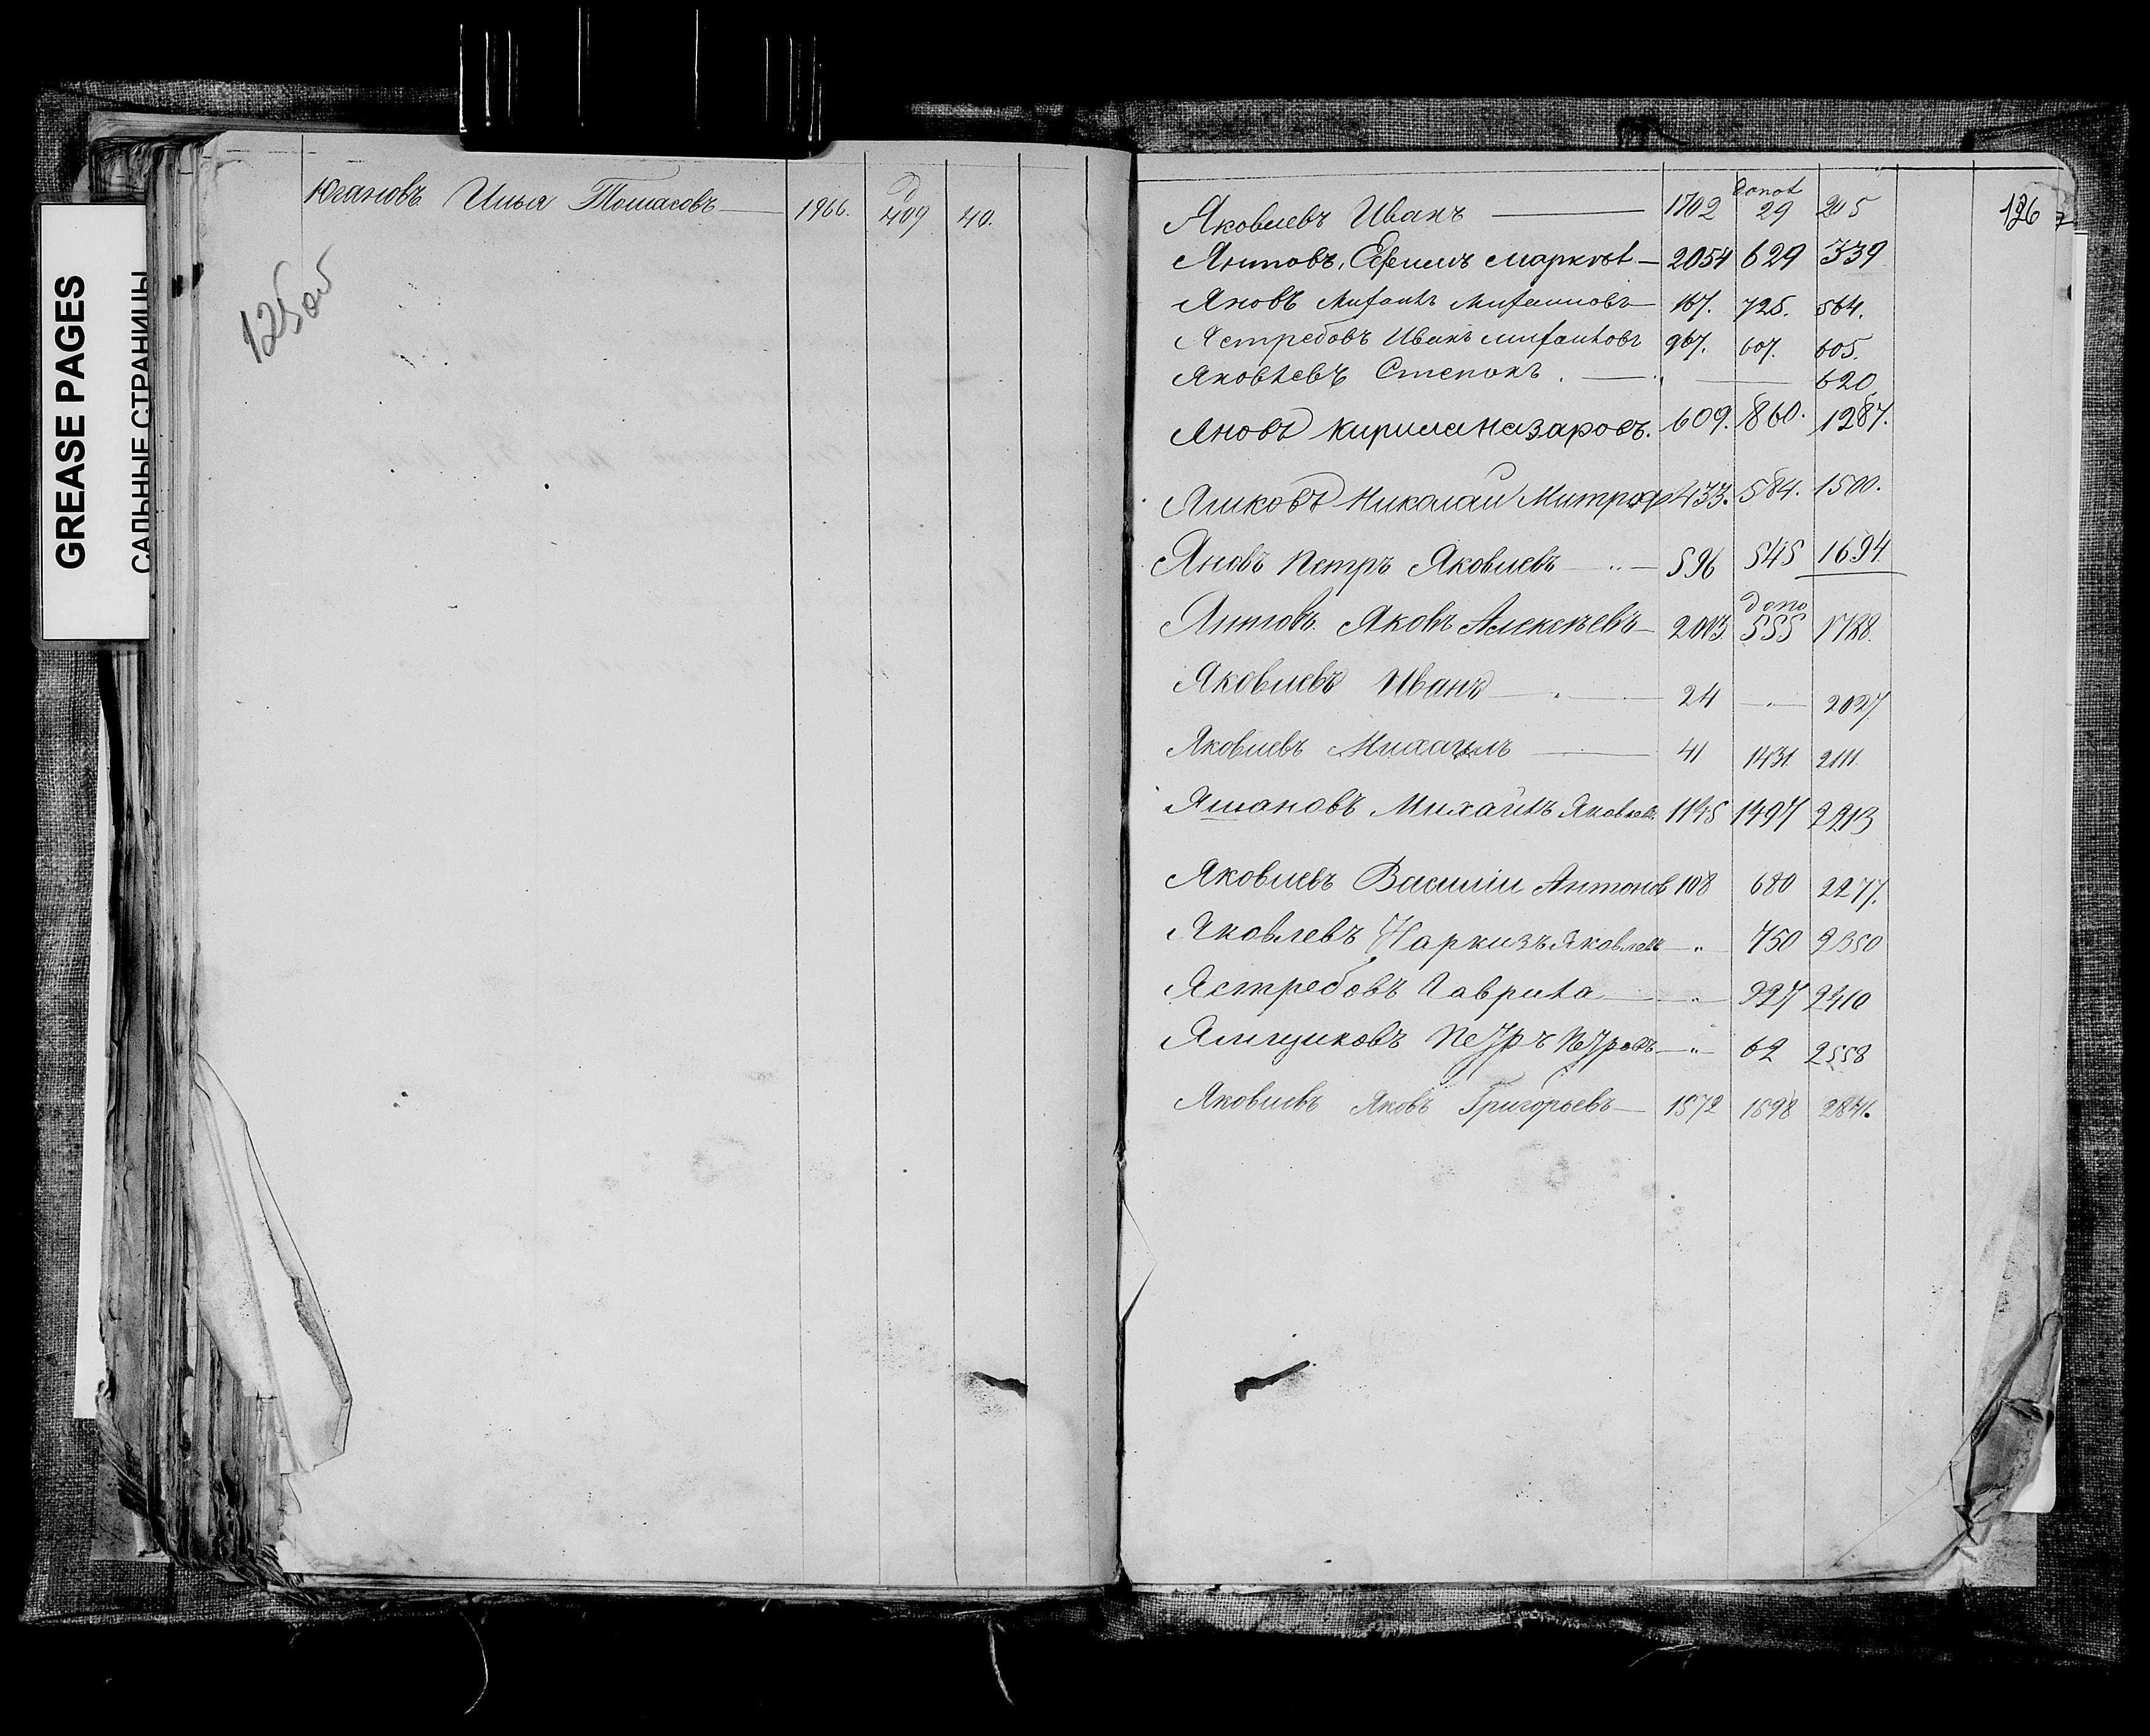 GREASE PAGES
САЛЬНЫЕ СТРАНИЦЫ
125 об
Югановъ Илья Томасовъ 1966. Д 409 40.
126
Яковлевъ Иванъ 1702 29 205
Ефимъ Марковъ 2054 629 339
Яновъ 167. 725. 564.
Ястребовъ Иванъ 967. 607. 605.
Яковлевъ Степанъ 620
Яновъ Кирила Назаровъ. 609. 860. 1287.
Николай Митроф 433. 584. 1500.
Яновъ Петръ Яковлевъ 596 545 1694
Яковъ Алексѣевъ допо 555 1788.
Яковлевъ Иванъ 24 2027
Яковлевъ Михаилъ 41 1431. 2111.
Яшановъ Михаилъ Яковлев. 1145 1497 2213
Яковлевъ Василій Антонов 108 680 2277.
Яковлевъ Наркизъ Яковлевъ " 750 2350
Ястребовъ Гаврила " 927 2410
Ямщиковъ Петръ Петровъ " 62 2558
Яковлевъ Яковъ Григорьевъ 1572 1598